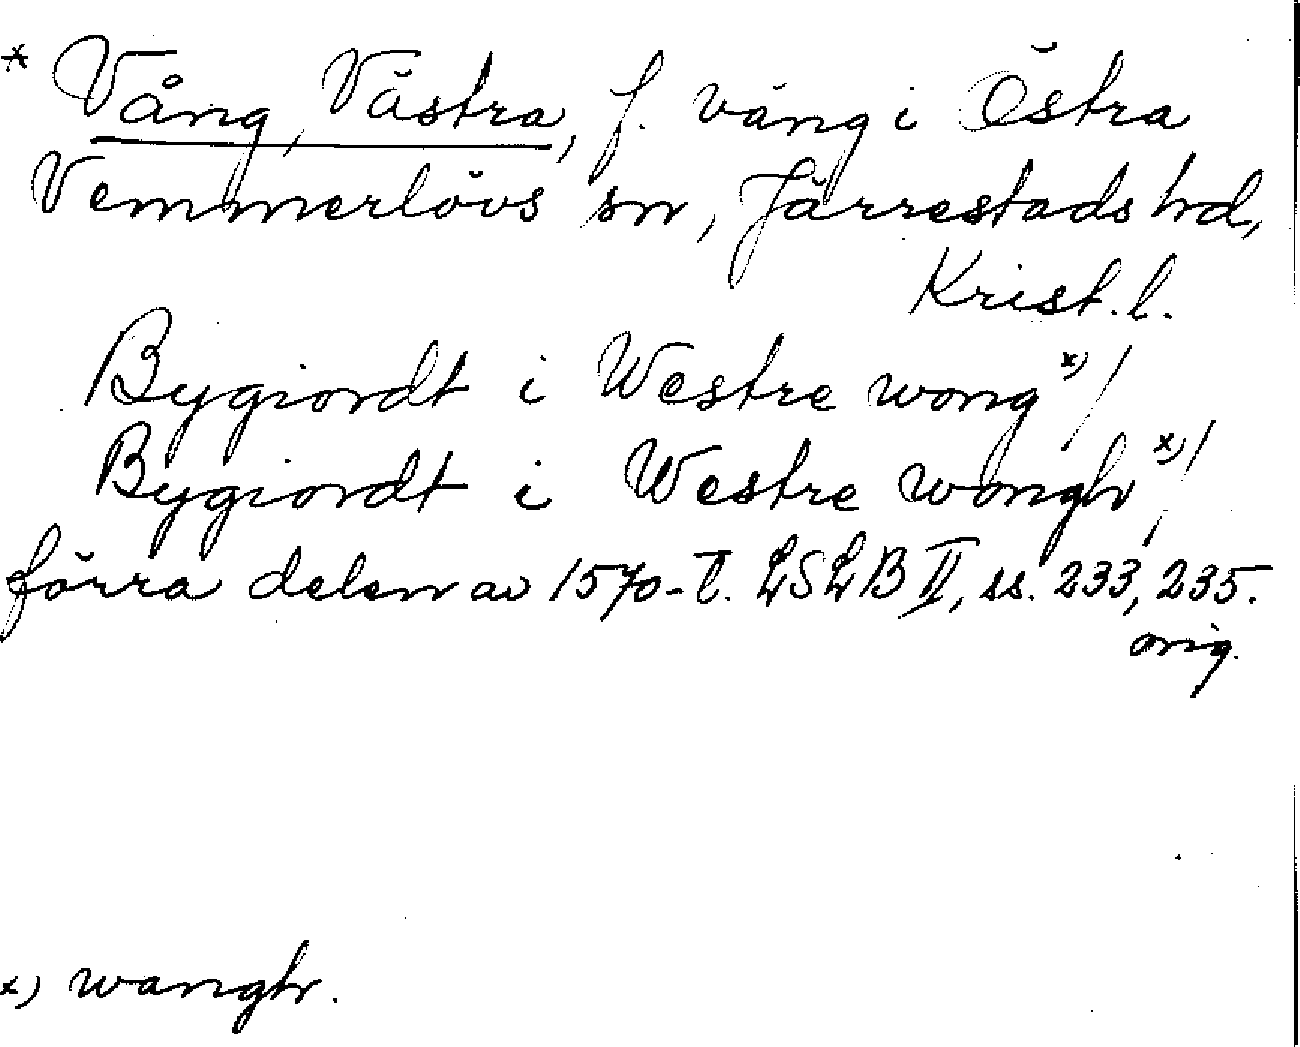 * Vång, Västra, f. väng i Östra
Vemmerlövs sn, Järrestads hd,
Krist. l.
Bygiordt i Westre wong x) /
Bygiordt i Westre wongh x) /,
förra delen av 1570-t. LSLB II, ss. 233, 235.
orig.
x) wangh.